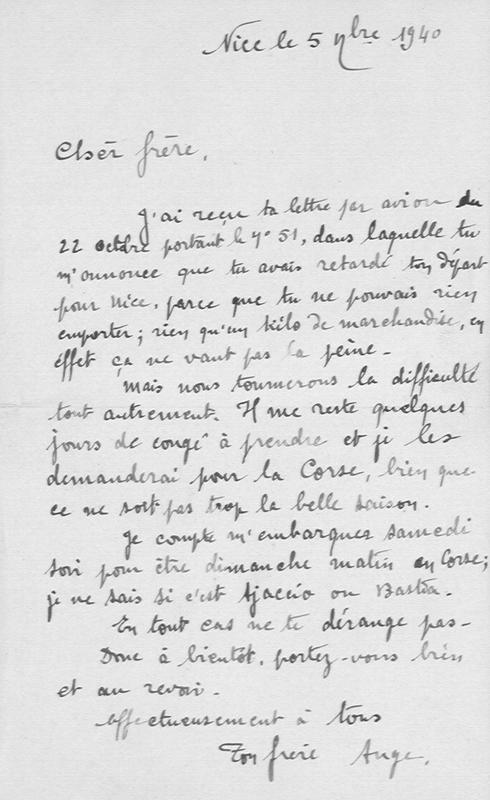 Nice le 5 9bre 1940
Cher frère,
J'ai reçu ta lettre par avion du
22 octobre portant le nº 51, dans laquelle tu
m'annonce que tu avais retardé ton départ
pour Nice, parce que tu ne pouvais rien
emporter; rien qu'un kilo de marchandise, en
éffet ça ne vaut pas la peine -
Mais nous tournerons la difficulté
tout autrement. Il me reste quelques
jours de congé à prendre et je les
demanderai pour la Corse, bien que
ce ne soit pas trop la belle saison.
Je compte m'embarquer samedi
soir pour être dimanche matin en Corse;
je ne sais si c'est Ajaccio ou Bastia -
En tout cas ne te dérange pas -
Donc à bientôt, portez-vous bien
et au revoir -
Affectueusement à tous
Ton frère Ange.